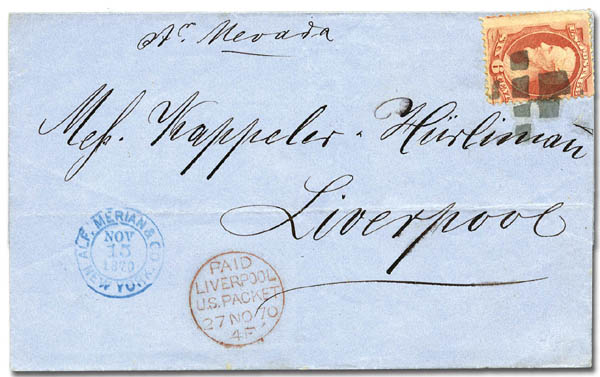 Str Nevada
Mess. Kappeler - Hürlimañ
Liverpool
ALF. MERIAN & CO
NOV
15
1870
NEW YORK
PAID
LIVERPOOL
U.S. PACKET
27 NO 70
4F